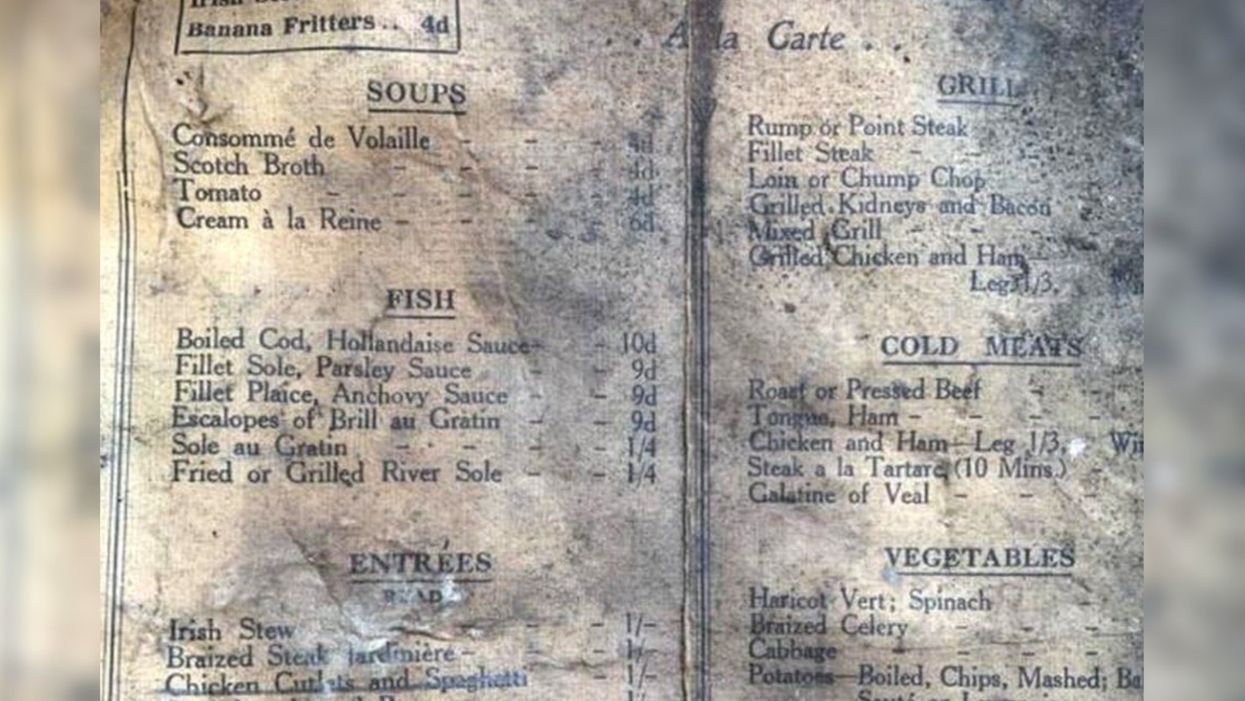 Banana Fritters .. 4d
. . A la Carte . .
SOUPS
Consommé de Volaille - - - 4d
Scotch Broth - - - 4d
Tomato - - - 4d
Cream à la Reine - - - 6d
FISH
Boiled Cod, Hollandaise Sauce - - 10d
Fillet Sole, Parsley Sauce - - 9d
Fillet Plaice, Anchovy Sauce - - 9d
Escalopes of Brill au Gratin - - 9d
Sole au Gratin - - - - 1/4
Fried or Grilled River Sole - - 1/4
ENTRÉES
READ
Irish Stew - - - 1/-
Braized Steak Jardinière - - - 1/-
Chicken Cutlets and Spaghetti - - 1/-
GRILL
Rump or Point Steak
Fillet Steak - - -
Loin or Chump Chop
Grilled Kidneys and Bacon
Mixed Grill - - -
Grilled Chicken and Ham
Leg 1/3.
COLD MEATS
Roast or Pressed Beef - -
Tongue, Ham - - - -
Chicken and Ham—Leg 1/3. Wi
Steak a la Tartare (10 Mins.) -
Galatine of Veal - - -
VEGETABLES
Haricot Vert; Spinach -
Braized Celery - - -
Cabbage - - - -
Potatoes—Boiled, Chips, Mashed; Ba